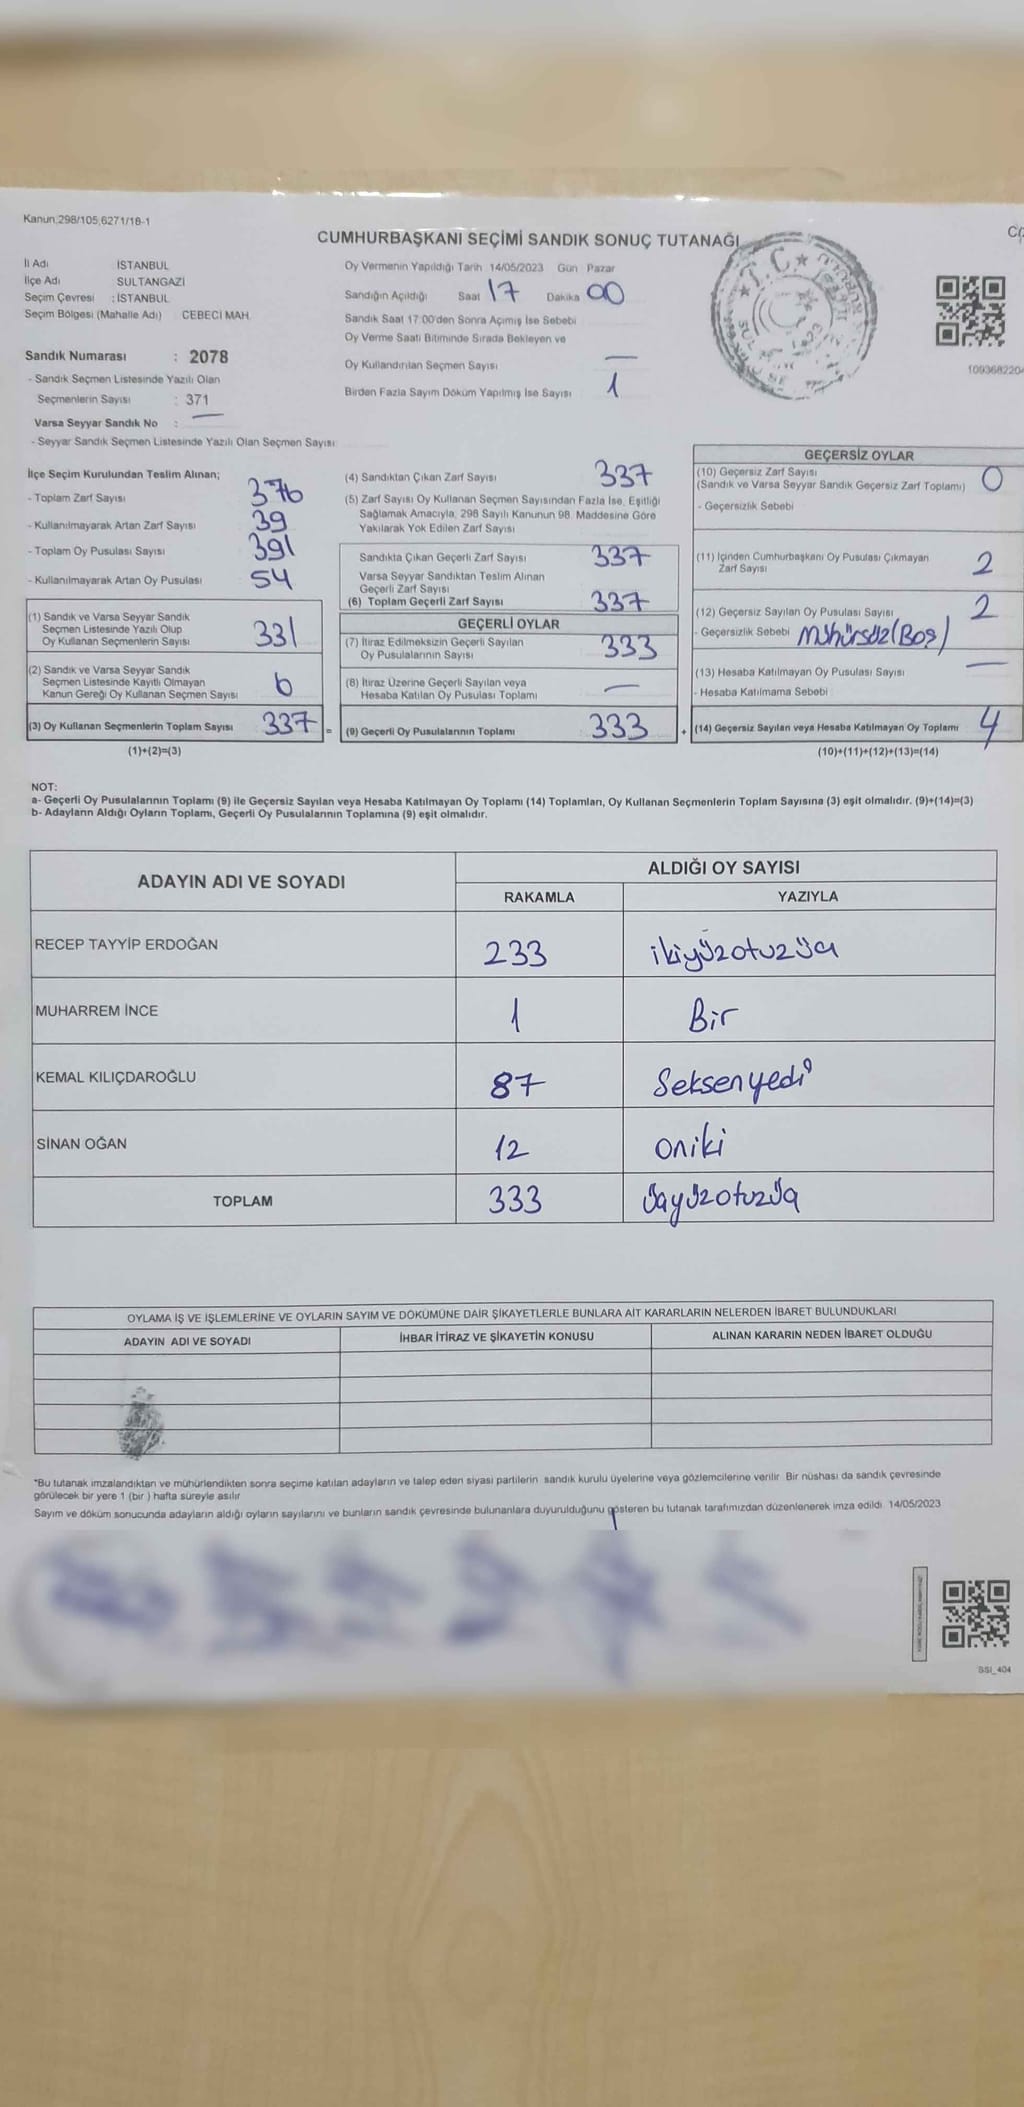 Kanun;298/105,6271/18-1
CUMHURBAŞKANI SEÇİMİ SANDIK SONUÇ TUTANAĞI
İl Adı İSTANBUL
İlçe Adı SULTANGAZİ
Seçim Çevresi : İSTANBUL
Seçim Bölgesi (Mahalle Adı) CEBECİ MAH.
Sandık Numarası : 2078
- Sandık Seçmen Listesinde Yazılı Olan
Seçmenlerin Sayısı : 371
Varsa Seyyar Sandık No : —
- Seyyar Sandık Seçmen Listesinde Yazılı Olan Seçmen Sayısı:
Oy Vermenin Yapıldığı Tarih 14/05/2023 Gün Pazar
Sandığın Açıldığı Saat 17 Dakika 00
Sandık Saat 17:00'den Sonra Açımış İse Sebebi
Oy Verme Saati Bitiminde Sırada Bekleyen ve
Oy Kullandırılan Seçmen Sayısı —
Birden Fazla Sayım Döküm Yapılmış İse Sayısı 1
T.C.
109368220
İlçe Seçim Kurulundan Teslim Alınan;
- Toplam Zarf Sayısı 376
- Kullanılmayarak Artan Zarf Sayısı 39
- Toplam Oy Pusulası Sayısı 391
- Kullanılmayarak Artan Oy Pusulası 54
(1) Sandık ve Varsa Seyyar Sandık
Seçmen Listesinde Yazılı Olup
Oy Kullanan Seçmenlerin Sayısı 331
(2) Sandık ve Varsa Seyyar Sandık
Seçmen Listesinde Kayıtlı Olmayan
Kanun Gereği Oy Kullanan Seçmen Sayısı 6
(3) Oy Kullanan Seçmenlerin Toplam Sayısı 337
(1)+(2)=(3)
(4) Sandıktan Çıkan Zarf Sayısı 337
(5) Zarf Sayısı Oy Kullanan Seçmen Sayısından Fazla İse, Eşitliği
Sağlamak Amacıyla, 298 Sayılı Kanunun 98. Maddesine Göre
Yakılarak Yok Edilen Zarf Sayısı
Sandıkta Çıkan Geçerli Zarf Sayısı 337
Varsa Seyyar Sandıktan Teslim Alınan
Geçerli Zarf Sayısı
(6) Toplam Geçerli Zarf Sayısı 337
GEÇERLİ OYLAR
(7) İtiraz Edilmeksizin Geçerli Sayılan
Oy Pusulalarının Sayısı 333
(8) İtiraz Üzerine Geçerli Sayılan veya
Hesaba Katılan Oy Pusulası Toplamı —
= (9) Geçerli Oy Pusulalarının Toplamı 333
GEÇERSİZ OYLAR
(10) Geçersiz Zarf Sayısı
(Sandık ve Varsa Seyyar Sandık Geçersiz Zarf Toplamı) 0
- Geçersizlik Sebebi
(11) İçinden Cumhurbaşkanı Oy Pusulası Çıkmayan
Zarf Sayısı 2
(12) Geçersiz Sayılan Oy Pusulası Sayısı 2
- Geçersizlik Sebebi Mühürsüz (Boş)
(13) Hesaba Katılmayan Oy Pusulası Sayısı —
- Hesaba Katılmama Sebebi
+ (14) Geçersiz Sayılan veya Hesaba Katılmayan Oy Toplamı 4
(10)+(11)+(12)+(13)=(14)
NOT:
a- Geçerli Oy Pusulalarının Toplamı (9) ile Geçersiz Sayılan veya Hesaba Katılmayan Oy Toplamı (14) Toplamları, Oy Kullanan Seçmenlerin Toplam Sayısına (3) eşit olmalıdır. (9)+(14)=(3)
b- Adayların Aldığı Oyların Toplamı, Geçerli Oy Pusulalarının Toplamına (9) eşit olmalıdır.
ADAYIN ADI VE SOYADI ALDIĞI OY SAYISI
RAKAMLA YAZIYLA
RECEP TAYYİP ERDOĞAN 233 ikiyüzotuzüç
MUHARREM İNCE 1 Bir
KEMAL KILIÇDAROĞLU 87 Seksenyedi
SİNAN OĞAN 12 oniki
TOPLAM 333 üçyüzotuzüç
OYLAMA İŞ VE İŞLEMLERİNE VE OYLARIN SAYIM VE DÖKÜMÜNE DAİR ŞİKAYETLERLE BUNLARA AİT KARARLARIN NELERDEN İBARET BULUNDUKLARI
ADAYIN ADI VE SOYADI İHBAR İTİRAZ VE ŞİKAYETİN KONUSU ALINAN KARARIN NEDEN İBARET OLDUĞU
*Bu tutanak imzalandıktan ve mühürlendikten sonra seçime katılan adayların ve talep eden siyasi partilerin sandık kurulu üyelerine veya gözlemcilerine verilir. Bir nüshası da sandık çevresinde
görülecek bir yere 1 (bir ) hafta süreyle asılır
Sayım ve döküm sonucunda adayların aldığı oyların sayılarını ve bunların sandık çevresinde bulunanlara duyurulduğunu gösteren bu tutanak tarafımızdan düzenlenerek imza edildi. 14/05/2023
SSI_404